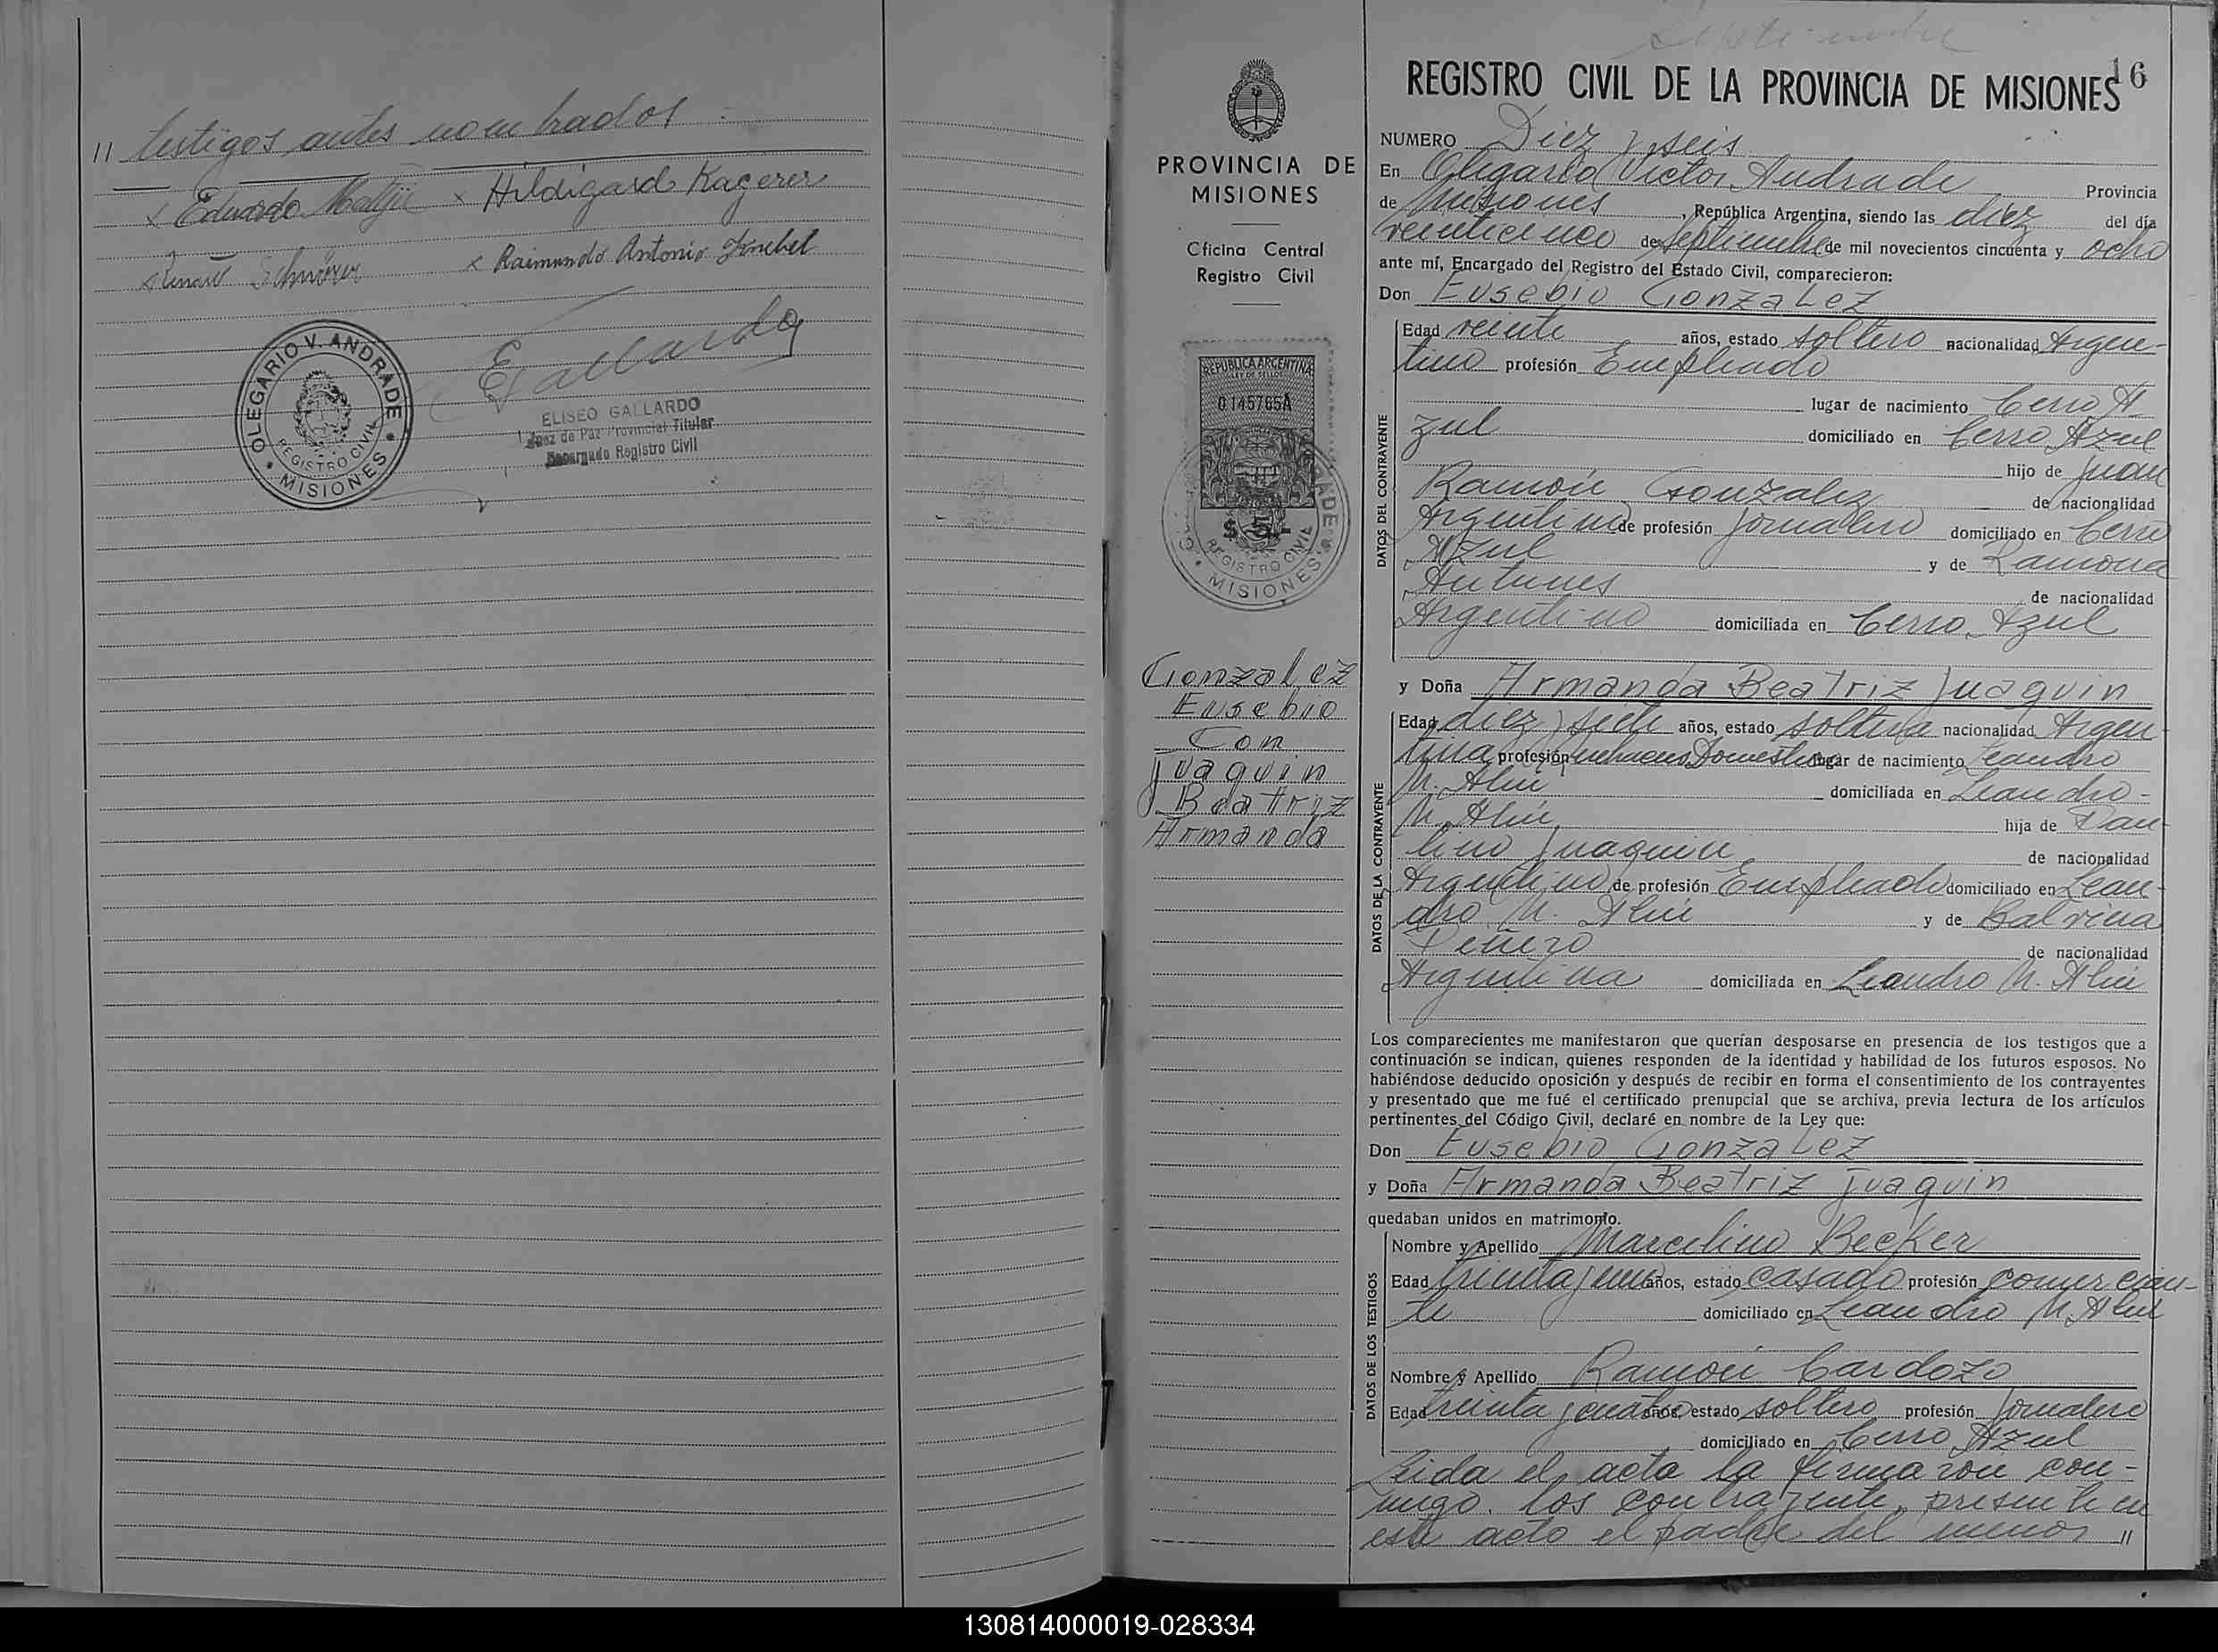 // testigos antes nombrados
x Eduardo x Hildigard Kagerer
x Schnörer x Raimundo Antonio Knebel
OLEGARIO V. ANDRADE
REGISTRO CIVIL
MISIONES
EGallardo
ELISEO GALLARDO
Juez de Paz Provincial Titular
Encargado Registro Civil
PROVINCIA DE
MISIONES
Oficina Central
Registro Civil
REPUBLICA ARGENTINA
LEY DE SELLOS
0145765A
$ 5.-
REGISTRO CIVIL
MISIONES
Gonzalez
Eusebio
Con
Juaquin
Beatriz
Armanda
Septiembre
REGISTRO CIVIL DE LA PROVINCIA DE MISIONES
16
NUMERO Diez y seis
En Olegario Victor Andrade Provincia
de Misiones, República Argentina, siendo las diez del día
veinticinco de Septiembre de mil novecientos cincuenta y ocho
ante mí, Encargado del Registro del Estado Civil, comparecieron:
Don Eusebio Gonzalez
DATOS DEL CONTRAYENTE
Edad veinte años, estado soltero nacionalidad Argen-
tino profesión Empleado
lugar de nacimiento Cerro A
zul domiciliado en Cerro Azul
hijo de Juan
Ramón Gonzalez de nacionalidad
Argentino de profesión Jornalero domiciliado en Cerro
Azul y de Ramona
Antunes de nacionalidad
Argentino domiciliada en Cerro Azul
y Doña Armanda Beatriz Juaquin
DATOS DE LA CONTRAYENTE
Edad diez y siete años, estado soltera nacionalidad Argen-
tina profesión quehaceres Domesticos lugar de nacimiento Leandro
N. Alem domiciliada en Leandro-
N. Alem hija de Pau-
lino Juaquin de nacionalidad
Argentino de profesión Empleado domiciliado en Lean-
dro N. Alem y de Balvina
de nacionalidad
Argentina domiciliada en Leandro N. Alem
Los comparecientes me manifestaron que querían desposarse en presencia de los testigos que a
continuación se indican, quienes responden de la identidad y habilidad de los futuros esposos. No
habiéndose deducido oposición y después de recibir en forma el consentimiento de los contrayentes
y presentado que me fué el certificado prenupcial que se archiva, previa lectura de los artículos
pertinentes del Código Civil, declaré en nombre de la Ley que:
Don Eusebio Gonzalez
y Doña Armanda Beatriz Juaquin
quedaban unidos en matrimonio.
DATOS DE LOS TESTIGOS
Nombre y Apellido Marcelino Becker
Edad treinta y uno años, estado casado profesión comercian-
te domiciliado en Leandro N. Alem
Nombre y Apellido Ramón Cardozo
Edad treinta y cuatro años, estado soltero profesión Jornalero
domiciliado en Cerro Azul
Leida el acta la firmaron con-
migo. los contrayente, presente en
este acto el padre del menor //
130814000019-028334